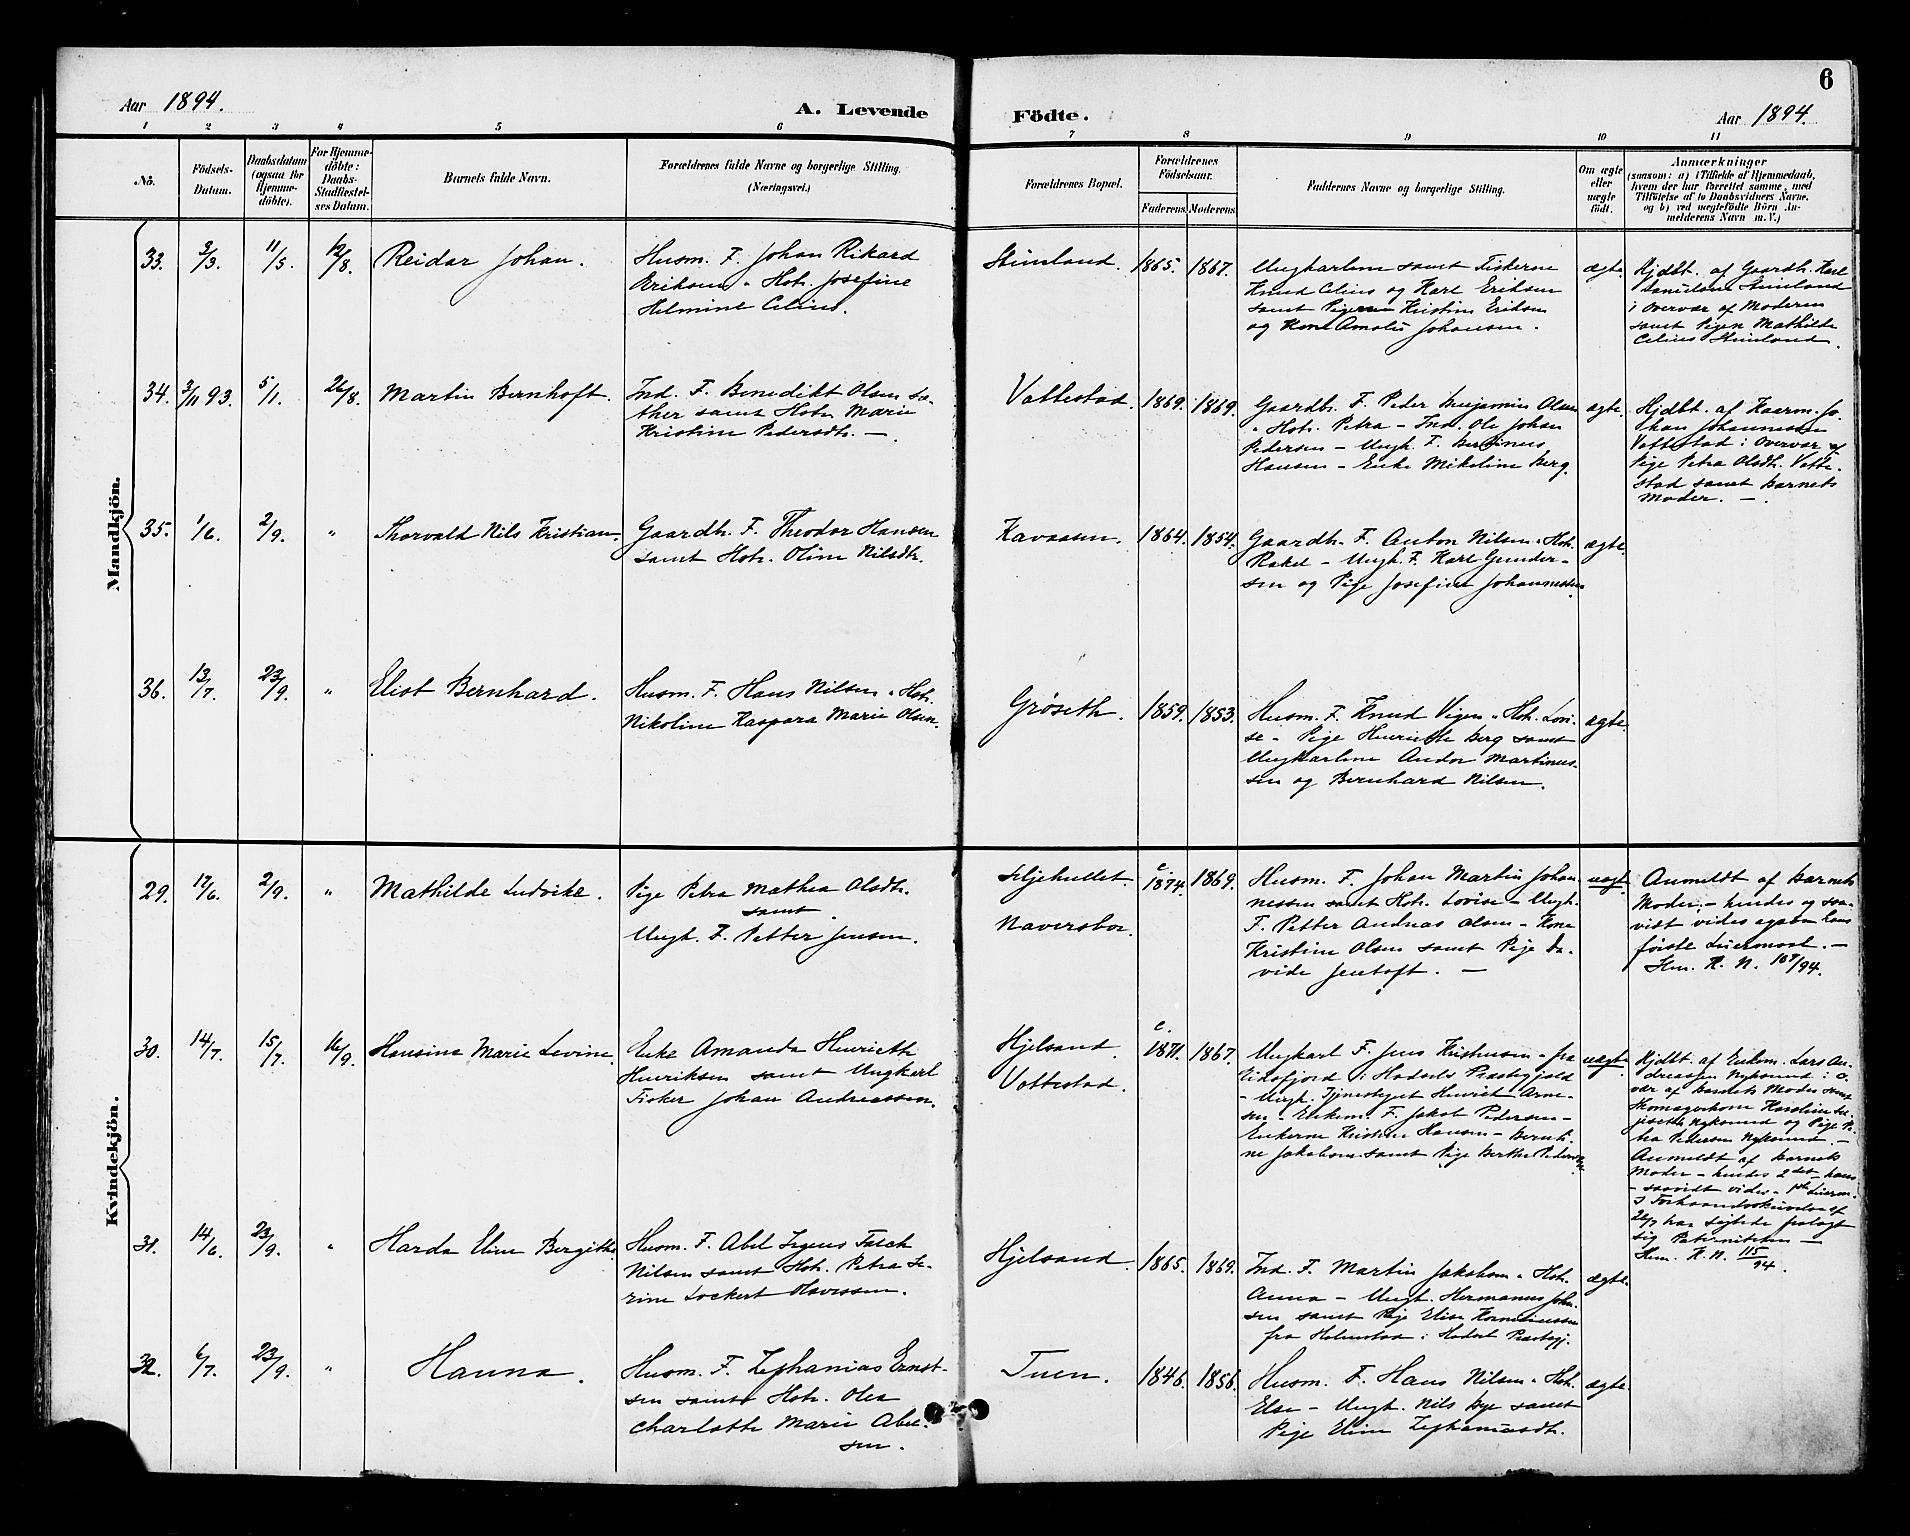 6
Aar 1894.
A. Levende
Födte.
Aar 1894.
1 2 3 4 5 6 7 8 9 10 11
No.
Födsels-
Datum.
Daabsdatum
(ogsaa for
Hjemme-
döbte).
For Hjemme-
döbte:
Daabs-
Stadfæstel-
ses Datum.
Barnets fulde Navn.
Forældrenes fulde Navne og borgerlige Stilling.
(Næringsvei.)
Forældrenes Bopæl.
Forældrenes
Födselsaar.
Faderens. Moderens.
Faddernes Navne og borgerlige Stilling.
Om ægte
eller
uægte
födt.
Anmærkninger
(saasom: a) i Tilfælde af Hjemmedaab,
hvem der har forrettet samme, med
Tilföielse af to Daabsvidners Navne,
og b) ved uægtefödte Börn An-
melderens Navn m. V.)
Mandkjön.
33. 2/3. 11/5. 12/8. Reidar Johan.
Husm. F. Johan Rikard
Eriksen & Hst. Josefine
Helmine Celius.
Stinland. 1865. 1867.
Ungkarlene samt Fiskerne
Knud Celius og Karl Eriksen
samt Pigerne Kristine Eriksen
og Kone Amalie Johansen.
ægte.
Hjdbt. af Gaardb. Karl
Danielsen Stinland
i Overvær af Moderen
samt Pigen Mathilde
Celius Stinland.
34. 3/11 93. 5/1. 26/8. Martin Bernhoft.
Ind. F. Benedikt Olsen Sæ-
ther samt Hstr. Marie
Kristine Pedersdtr. —
Vottestad. 1869. 1869.
Gaardbr. F. Peder Benjamin Olsen
& Hstr. Petra – Ind. Ole Johan
Pedersen – Ungk. F. Bertinus
Hansen – Enke Mikeline Berg.
ægte.
Hjdbt. af Kaarm. Jo-
han Johannessen
Vottestad i Overvær af
Pige Petra Olsdtr. Votte-
stad samt Barnets
Moder. —
35. 1/6. 2/9. " Thorvald Nils Kristian.
Gaardbr. F. Theodor Hansen
samt Hstr. Oline Nilsdtr.
Kavaasen. 1864. 1854.
Gaardbr. F. Anton Nilsen & Hstr.
Rakel – Ungk. F. Karl Gunder-
sen og Pige Josefine Johannessen.
ægte.
36. 13/7. 23/9. " Eliot Bernhard.
Husm. F. Hans Nilsen & Hstr.
Nikoline Kaspara Marie Olsen.
Grøseth. 1859. 1853.
Husm. F. Knud Vigen & Hstr. Lovi-
se – Pige Henriette Berg samt
Ungkarlene Andor Martinus-
sen og Bernhard Nilsen.
ægte.
Kvindekjön.
29. 17/6. 2/9. " Mathilde Ludvike.
Pige Petra Mathea Olsdtr.
samt
Ungk. F. Petter Jensen.
Naversbor.
c. 1874. 1869.
Husm. F. Johan Martin Johan-
nessen samt Hstr. Lovise – Ungk.
F. Petter Andreas Olsen – Kone
Kristine Olsen samt Pige Da-
vide Jentoft. —
uægt.
Anmeldt af Barnets
Moder – hendes og saa-
vidt vides ogsaa hans
første Leiermaal. —
Skm. R. N. 107/94.
30. 14/7. 15/7. 16/9. Hansine Marie Levine.
Enke Amanda Henriette
Henriksen samt Ungkarl
Fisker Johan Andreassen.
Hjelsand.
Vottestad.
c. 1871. 1867.
Ungkarl F. Jens Kristensen – fra
Eidsfjord i Hadsels Præstegjæld
– Ungk. Tjenestegut Henrik Arne-
sen – Enkem. F. Jakob Pedersen –
Enkerne Kristine Hansen – Bernti-
ne Jakobsen samt Pige Berthe Pedersen.
uægt.
Hjdbt. af Enkem. Lars An-
dreassen Nyksund i O-
vær af Barnets Moder samt
Skomagerkone Karoline
Nyksund og Pige Pe-
tra Pedersen Nyksund. —
Anmeldt af Barnets
Moder – hendes 2det – hans
– saavidt vides – 1ste Leierm.
I Forhaandsskrivelse af
26/7 har Sigtede fralagt
sig Paterniteten —
Skm. R. N. 115/94.
31. 14/6. 23/9. " Harda Eline Bergithe.
Husm. F. Abel Irgens Falch
Nilsen samt Hstr. Petra Se-
rine Lockert Olavessen.
Hjelsand. 1865. 1869.
Ind. F. Martin Jakobsen & Hstr.
Anna – Ungk. Hermanus Johan-
sen samt Pige Elise Korneliussen
fra Holmstad i Hadsel Præstegj.
ægte.
32. 6/7. 23/9. " Hanna.
Husm. F. Zephanias Ernst-
sen samt Hstr. Olea
Charlotte Marie Abel-
sen.
Tuen. 1846. 1856.
Husm. F. Hans Nilsen & Hstr.
Else – Ungk. Nils Bye samt
Pige Eline Zephaniasdtr.
ægte.